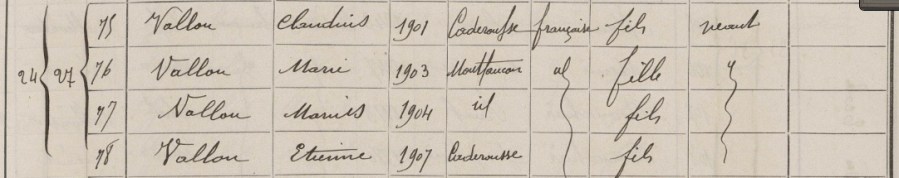 75 Vallou Claudius 1901 Caderousse française fils néant
24 27 76 Vallou Marie 1903 Montfaucon id fille
77 Vallou Marius 1904 id fils
78 Vallou Etienne 1907 Caderousse fils